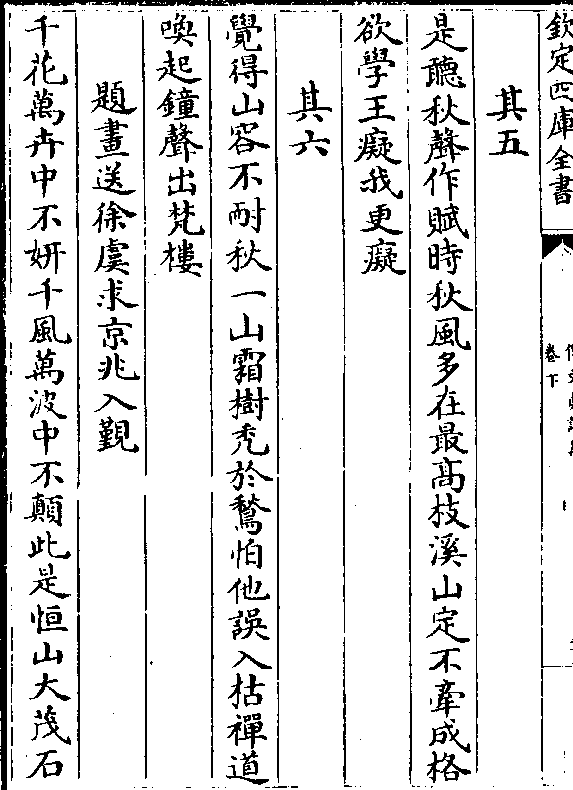 欽定四庫全書
卷下
其五
是聽秋聲作賦時秋風多在最高枝溪山定不牽成格
欲學王癡我更癡
其六
覺得山容不耐秋一山霜樹禿於鶖怕他誤入枯禪道
喚起鐘聲出梵樓
題畫送徐虞求京兆入覲
千花萬卉中不妍千風萬波中不顛此是恒山大茂石